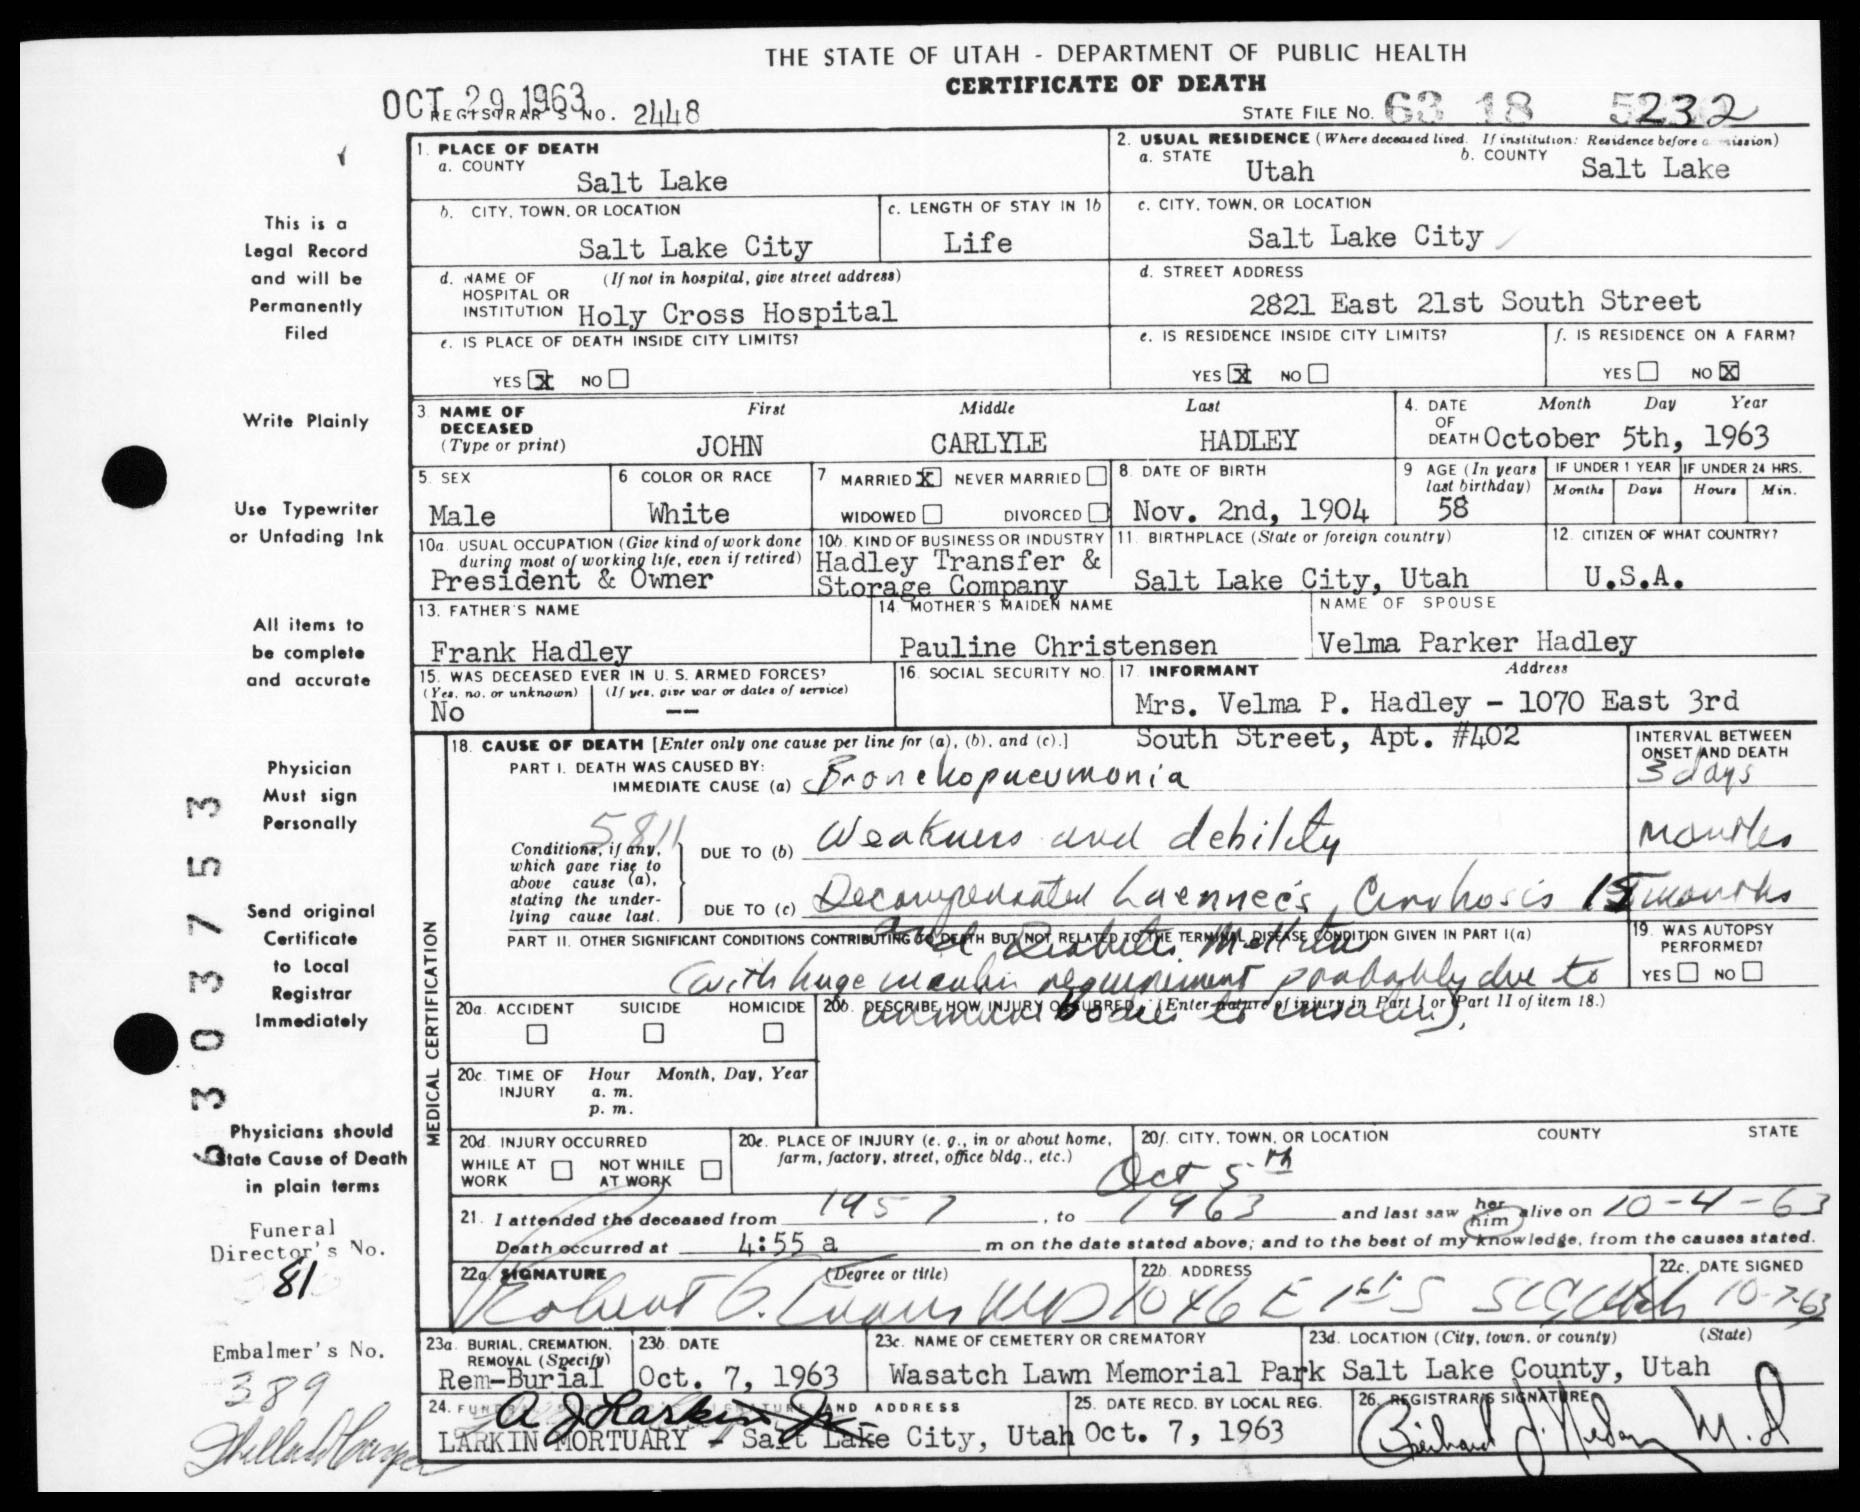 THE STATE OF UTAH - DEPARTMENT OF PUBLIC HEALTH
CERTIFICATE OF DEATH
OCT 29 1963
REGISTRAR'S NO. 2448
STATE FILE NO. 63 18 5232
This is a
Legal Record
and will be
Permanently
Filed
Write Plainly
Use Typewriter
or Unfading Ink
All items to
be complete
and accurate
Physician
Must sign
Personally
Send original
Certificate
to Local
Registrar
Immediately
Physicians should
State Cause of Death
in plain terms
6303753
Funeral
Director's No.
81
Embalmer's No.
389
1. PLACE OF DEATH
a. COUNTY
Salt Lake
2. USUAL RESIDENCE (Where deceased lived. If institution: Residence before admission)
a. STATE Utah b. COUNTY Salt Lake
b. CITY, TOWN, OR LOCATION
Salt Lake City
c. LENGTH OF STAY IN 1b
Life
c. CITY, TOWN, OR LOCATION
Salt Lake City
d. NAME OF HOSPITAL OR INSTITUTION (If not in hospital, give street address)
Holy Cross Hospital
d. STREET ADDRESS
2821 East 21st South Street
e. IS PLACE OF DEATH INSIDE CITY LIMITS?
YES X NO
e. IS RESIDENCE INSIDE CITY LIMITS?
YES X NO
f. IS RESIDENCE ON A FARM?
YES NO X
3. NAME OF DECEASED (Type or print)
First Middle Last
JOHN CARLYLE HADLEY
4. DATE OF DEATH Month Day Year
October 5th, 1963
5. SEX
Male
6 COLOR OR RACE
White
7 MARRIED X NEVER MARRIED
WIDOWED DIVORCED
8 DATE OF BIRTH
Nov. 2nd, 1904
9 AGE (In years last birthday)
58
IF UNDER 1 YEAR
Months Days
IF UNDER 24 HRS.
Hours Min.
10a. USUAL OCCUPATION (Give kind of work done during most of working life, even if retired)
President & Owner
10b. KIND OF BUSINESS OR INDUSTRY
Hadley Transfer &
Storage Company
11. BIRTHPLACE (State or foreign country)
Salt Lake City, Utah
12. CITIZEN OF WHAT COUNTRY?
U.S.A.
13. FATHER'S NAME
Frank Hadley
14. MOTHER'S MAIDEN NAME
Pauline Christensen
NAME OF SPOUSE
Velma Parker Hadley
15. WAS DECEASED EVER IN U. S. ARMED FORCES?
(Yes, no, or unknown) (If yes, give war or dates of service)
No --
16. SOCIAL SECURITY NO.
17 INFORMANT Address
Mrs. Velma P. Hadley - 1070 East 3rd
South Street, Apt. #402
MEDICAL CERTIFICATION
18. CAUSE OF DEATH [Enter only one cause per line for (a), (b), and (c).]
INTERVAL BETWEEN ONSET AND DEATH
PART I. DEATH WAS CAUSED BY:
IMMEDIATE CAUSE (a) Bronchopneumonia 3 days
Conditions, if any, which gave rise to above cause (a), stating the underlying cause last.
DUE TO (b) Weakness and debility months
DUE TO (c) Decompensated Laennec's Cirrhosis 15 months
and Diabetes Mellitus
PART II. OTHER SIGNIFICANT CONDITIONS CONTRIBUTING TO DEATH BUT NOT RELATED TO THE TERMINAL DISEASE CONDITION GIVEN IN PART I(a)
(with huge insulin requirement probably due to
bodies to insulin).
19. WAS AUTOPSY PERFORMED?
YES NO
20a. ACCIDENT SUICIDE HOMICIDE
20b. DESCRIBE HOW INJURY OCCURRED. (Enter nature of injury in Part I or Part II of item 18.)
20c. TIME OF INJURY Hour Month, Day, Year
a. m.
p. m.
20d. INJURY OCCURRED
WHILE AT WORK NOT WHILE AT WORK
20e. PLACE OF INJURY (e. g., in or about home, farm, factory, street, office bldg., etc.)
20f. CITY, TOWN, OR LOCATION COUNTY STATE
Oct 5th
21. I attended the deceased from 1957, to 1963 and last saw her him alive on 10-4-63
Death occurred at 4:55 a m on the date stated above; and to the best of my knowledge, from the causes stated.
22a. SIGNATURE (Degree or title)
Robert G. Evans MD
22b. ADDRESS
1046 E 1st S SLC Utah
22c. DATE SIGNED
10-7-63
23a. BURIAL, CREMATION, REMOVAL (Specify)
Rem-Burial
23b. DATE
Oct. 7, 1963
23c. NAME OF CEMETERY OR CREMATORY
Wasatch Lawn Memorial Park
23d. LOCATION (City, town, or county) (State)
Salt Lake County, Utah
24. FUNERAL DIRECTOR'S SIGNATURE AND ADDRESS
A J Larkin Jr
LARKIN MORTUARY - Salt Lake City, Utah
25. DATE RECD. BY LOCAL REG.
Oct. 7, 1963
26. REGISTRAR'S SIGNATURE
M.D.